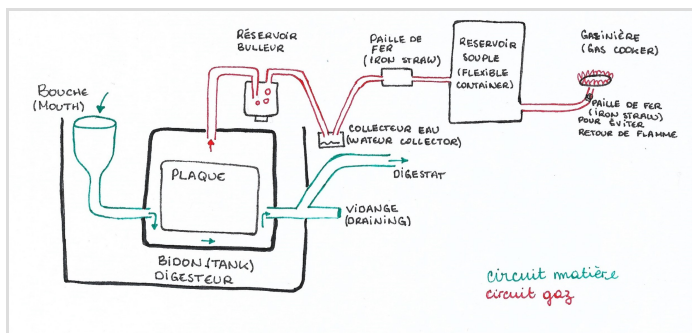 BOUCHE
(MOUTH)
RÉSERVOIR
BULLEUR
PAILLE DE
FER
(IRON STRAW)
RESERVOIR
SOUPLE
(FLEXIBLE
CONTAINER)
GAZINIÈRE
(GAS COOKER)
PAILLE DE FER
(IRON STRAW)
POUR ÉVITER
RETOUR DE FLAMME
COLLECTEUR EAU
(WATEUR COLLECTOR)
PLAQUE
DIGESTAT
VIDANGE
(DRAINING)
BIDON (TANK)
DIGESTEUR
circuit matière
circuit gaz